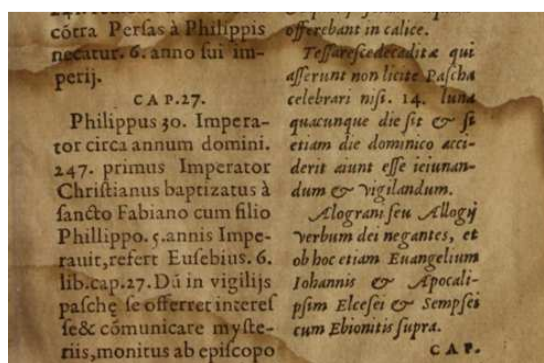 cõtra Persas à Philippis
necatur. 6. anno sui im-
perij.
CAP.27.
Philippus 30. Impera-
tor circa annum domini.
247. primus Imperator
Chriſtianus baptizatus à
ſancto Fabiano cum filio
Phillippo. 5. annis Impe-
rauit, refert Euſebius. 6.
lib.cap.27. Dũ in vigilijs
paſchę ſe offerret intereſ
ſe& cõmunicare myſte-
riis, monitus ab epiſcopo
offerebant in calice.
Teſſareſcedecaditæ qui
aſſerunt non licite Paſcha
celebrari niſi. 14. luna
quacunque die ſit & ſi
etiam die dominico acci-
derit aiunt eſſe ieiunan-
dum & vigilandum.
Alograni ſeu Allogij
verbum dei negantes, et
ob hoc etiam Euangelium
Iohannis & Apocali-
pſim Elceſei & Sempſei
cum Ebionitis ſupra.
CAP.